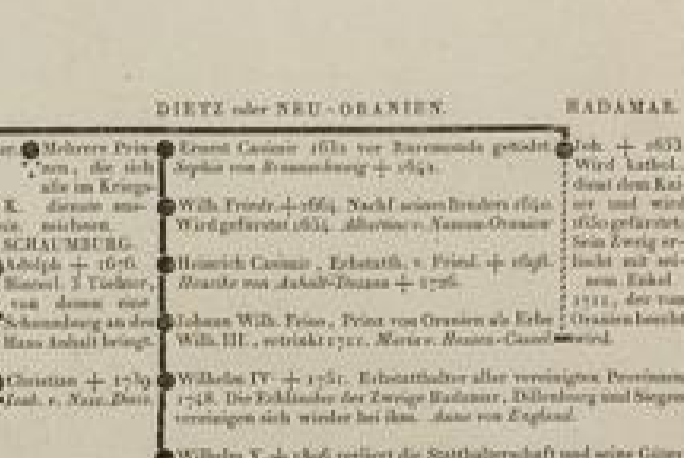 DIETZ oder NEU-ORANIEN.
HADAMAR.
Mehrere Prin-
zen, die sich
alle im Kriegs-
dienste aus-
zeichnen.
SCHAUMBURG.
Adolph + 1676.
Hinterl. 3 Töchter,
von denen eine
Schaumburg an das
Haus Anhalt bringt.
Christian + 1739
Ernst Casimir 1632 vor Ruremonde getödet.
Sophia von Braunschweig + 1642.
Wilh. Friedr. + 1664. Nachf seines Bruders 1640.
Wird gefürstet 1654. Albertine v. Nassau-Oranien
Heinrich Casimir, Erbstatth. v. Friesl. + 1696.
Henriette von Anhalt-Dessau + 1726.
Johann Wilh. Friso, Prinz von Oranien als Erbe
Wilh. III., ertrinkt 1711. Maria v. Hessen-Cassel
Wilhelm IV + 1751. Erbstatthalter aller vereinigten Provinzen
1748. Die Erbländer der Zweige Hadamar, Dillenburg und Siegen
vereinigen sich wieder bei ihm. Anna von England.
Wilhelm V + 1806 verliert die Statthalterschaft und seine Güter
Joh. + 1653
Wird kathol.
dient dem Kai-
ser und wird
1650 gefürstet.
Sein Zweig er-
lischt mit sei-
nem Enkel
1711, der von
Oranien beerbt
wird.